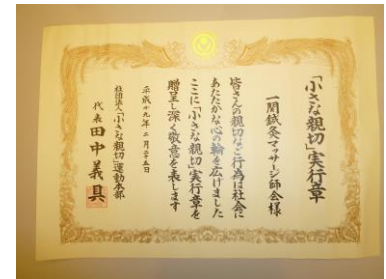 「小さな親切」実行章
一関鍼灸マッサージ師会様
皆さんの親切な行為は社会に
あたたかな心の輪を広げました
ここに「小さな親切」実行章を
贈呈し深く敬意を表します
平成十九年二月二十五日
社団法人「小さな親切」運動本部
代表 田中義具